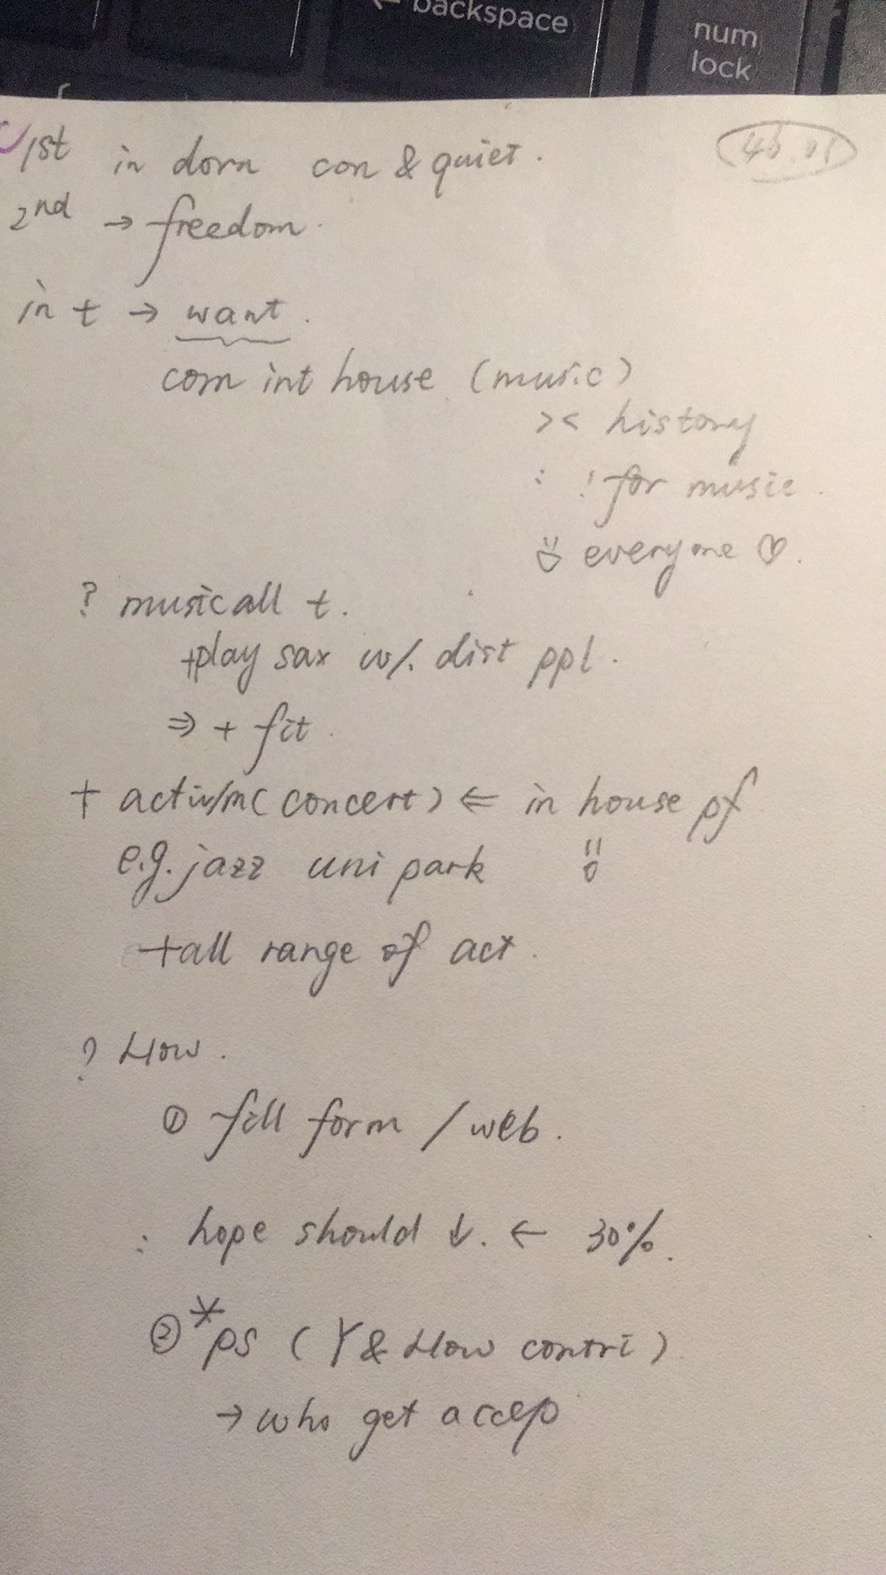 ← backspace
num
lock
1st in dorm con & quiet.
2nd → freedom.
in t → want.
com int house (music)
>< history
: ! for music.
everyone ♡.
? music all t.
+play sax w/. dist ppl.
⇒ + fit.
+ activ/m( concert) ⇐ in house pf
e.g. jazz uni park
+all range of act.
? How.
① fill form / web.
: hope should ↓. ← 30%.
② *ps ( Y & How contri )
→ who get accep